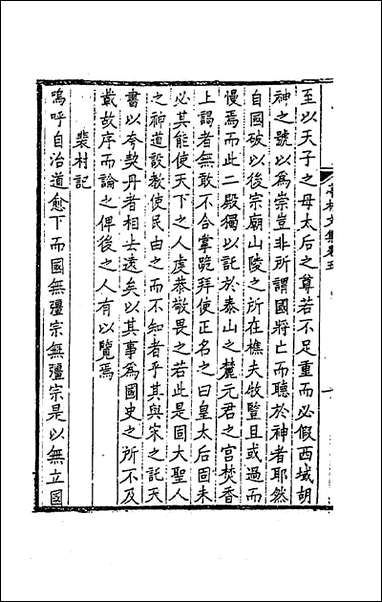 亭林文集卷五
至以天子之母太后之尊若不足重而必假西域胡
神之號以為崇豈非所謂國將亡而聽於神者耶然
自國破以後宗廟山陵之所在樵夫牧豎且或過而
慢焉而此二殿獨以託於泰山之麓元君之宮焚香
上謁者無敢不合掌跪拜使正名之曰皇太后固未
必其能使天下之人虔恭敬畏之若此是固大聖人
之神道設教使民由之而不知者乎其與宋之託天
書以夸契丹者相去遠矣以其事為國史之所不及
載故序而論之俾後之人有以覽焉
裴村記
嗚呼自治道愈下而國無彊宗無彊宗是以無立國